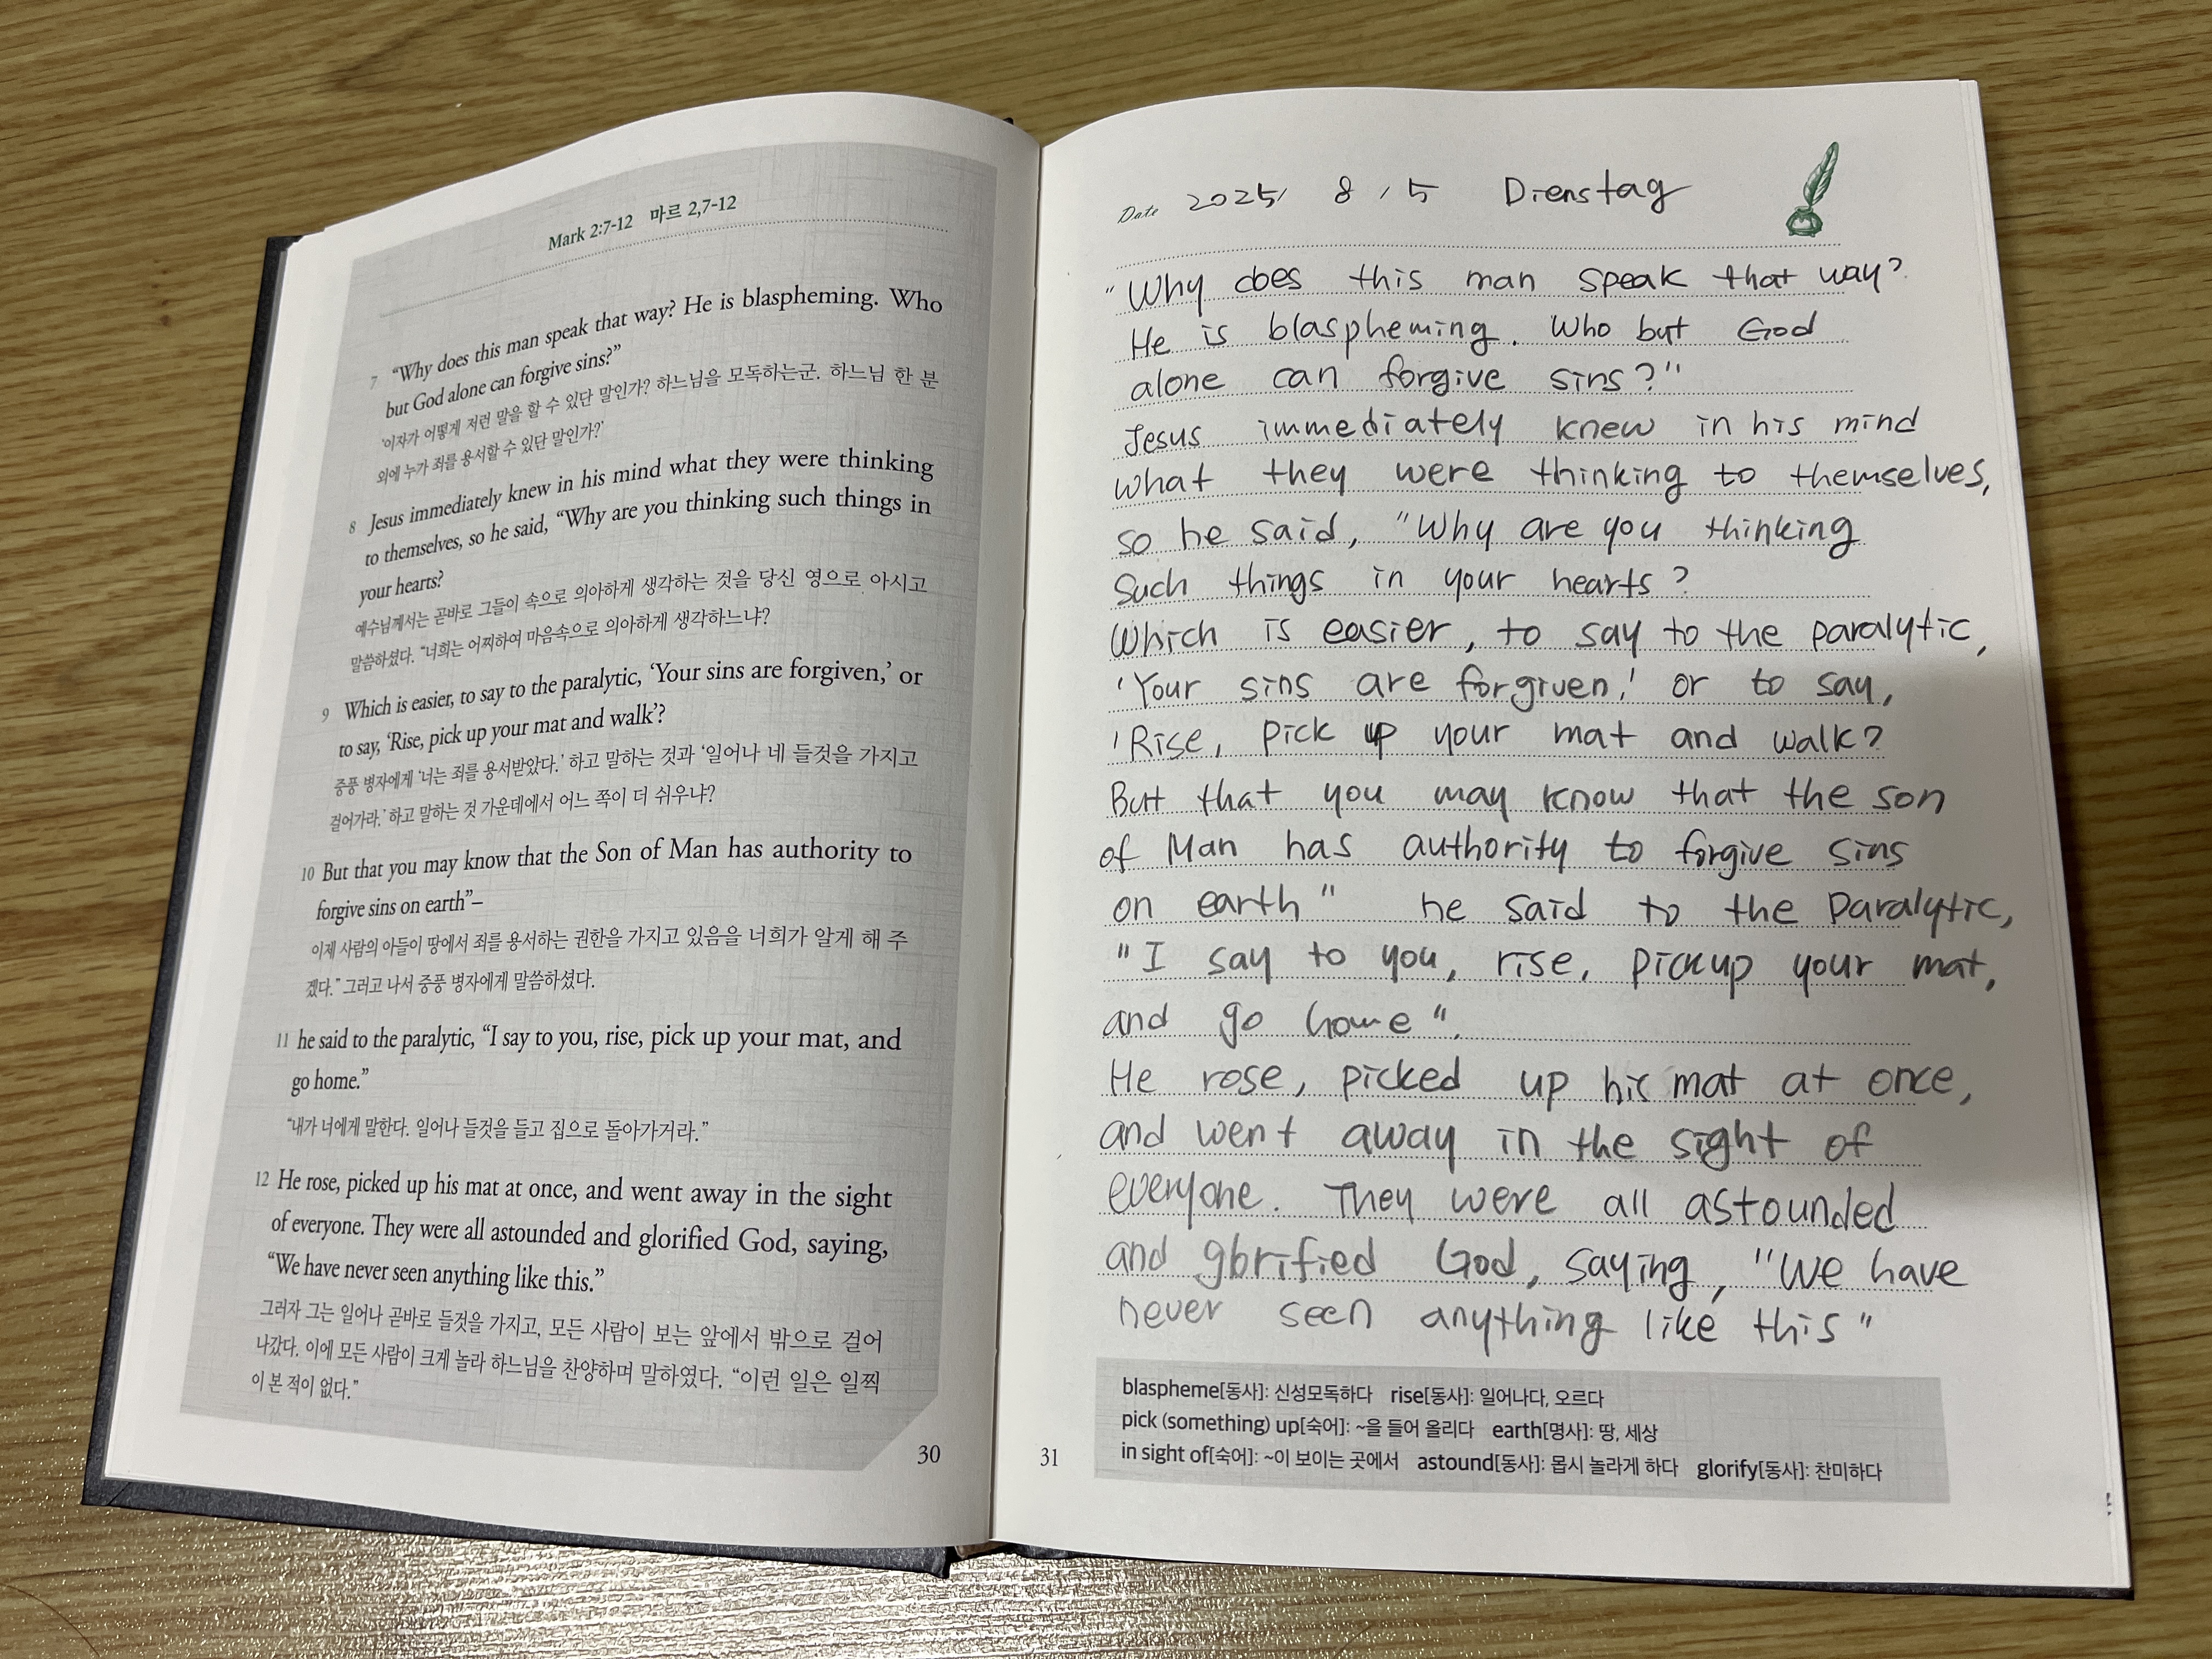 Mark 2:7-12 마르 2,7-12
7 “Why does this man speak that way? He is blaspheming. Who
but God alone can forgive sins?”
‘이자가 어떻게 저런 말을 할 수 있단 말인가? 하느님을 모독하는군. 하느님 한 분
외에 누가 죄를 용서할 수 있단 말인가?’
8 Jesus immediately knew in his mind what they were thinking
to themselves, so he said, “Why are you thinking such things in
your hearts?
예수님께서는 곧바로 그들이 속으로 의아하게 생각하는 것을 당신 영으로 아시고
말씀하셨다. “너희는 어찌하여 마음속으로 의아하게 생각하느냐?
9 Which is easier, to say to the paralytic, ‘Your sins are forgiven,’ or
to say, ‘Rise, pick up your mat and walk’?
중풍 병자에게 ‘너는 죄를 용서받았다.’ 하고 말하는 것과 ‘일어나 네 들것을 가지고
걸어가라.’ 하고 말하는 것 가운데에서 어느 쪽이 더 쉬우냐?
10 But that you may know that the Son of Man has authority to
forgive sins on earth”–
이제 사람의 아들이 땅에서 죄를 용서하는 권한을 가지고 있음을 너희가 알게 해 주
겠다.” 그러고 나서 중풍 병자에게 말씀하셨다.
11 he said to the paralytic, “I say to you, rise, pick up your mat, and
go home.”
“내가 너에게 말한다. 일어나 들것을 들고 집으로 돌아가거라.”
12 He rose, picked up his mat at once, and went away in the sight
of everyone. They were all astounded and glorified God, saying,
“We have never seen anything like this.”
그러자 그는 일어나 곧바로 들것을 가지고, 모든 사람이 보는 앞에서 밖으로 걸어
나갔다. 이에 모든 사람이 크게 놀라 하느님을 찬양하며 말하였다. “이런 일은 일찍
이 본 적이 없다.”
30
Date 2025/ 8 / 5 Dienstag
"Why does this man speak that way?
He is blaspheming. Who but God
alone can forgive sins?"
Jesus immediately knew in his mind
what they were thinking to themselves,
so he said, "Why are you thinking
such things in your hearts?
Which is easier, to say to the paralytic,
'Your sins are forgiven,' or to say,
'Rise, pick up your mat and walk?
But that you may know that the son
of Man has authority to forgive sins
on earth" he said to the paralytic,
"I say to you, rise, pickup your mat,
and go home".
He rose, picked up his mat at once,
and went away in the sight of
everyone. They were all astounded
and glorified God, saying, "We have
never seen anything like this"
blaspheme[동사]: 신성모독하다 rise[동사]: 일어나다, 오르다
pick (something) up[숙어]: ~을 들어 올리다 earth[명사]: 땅, 세상
in sight of[숙어]: ~이 보이는 곳에서 astound[동사]: 몹시 놀라게 하다 glorify[동사]: 찬미하다
31